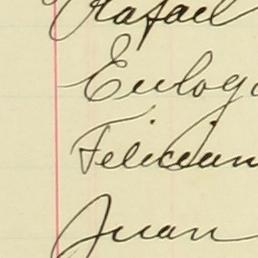 Rafael
Eulog
Felician
Juan